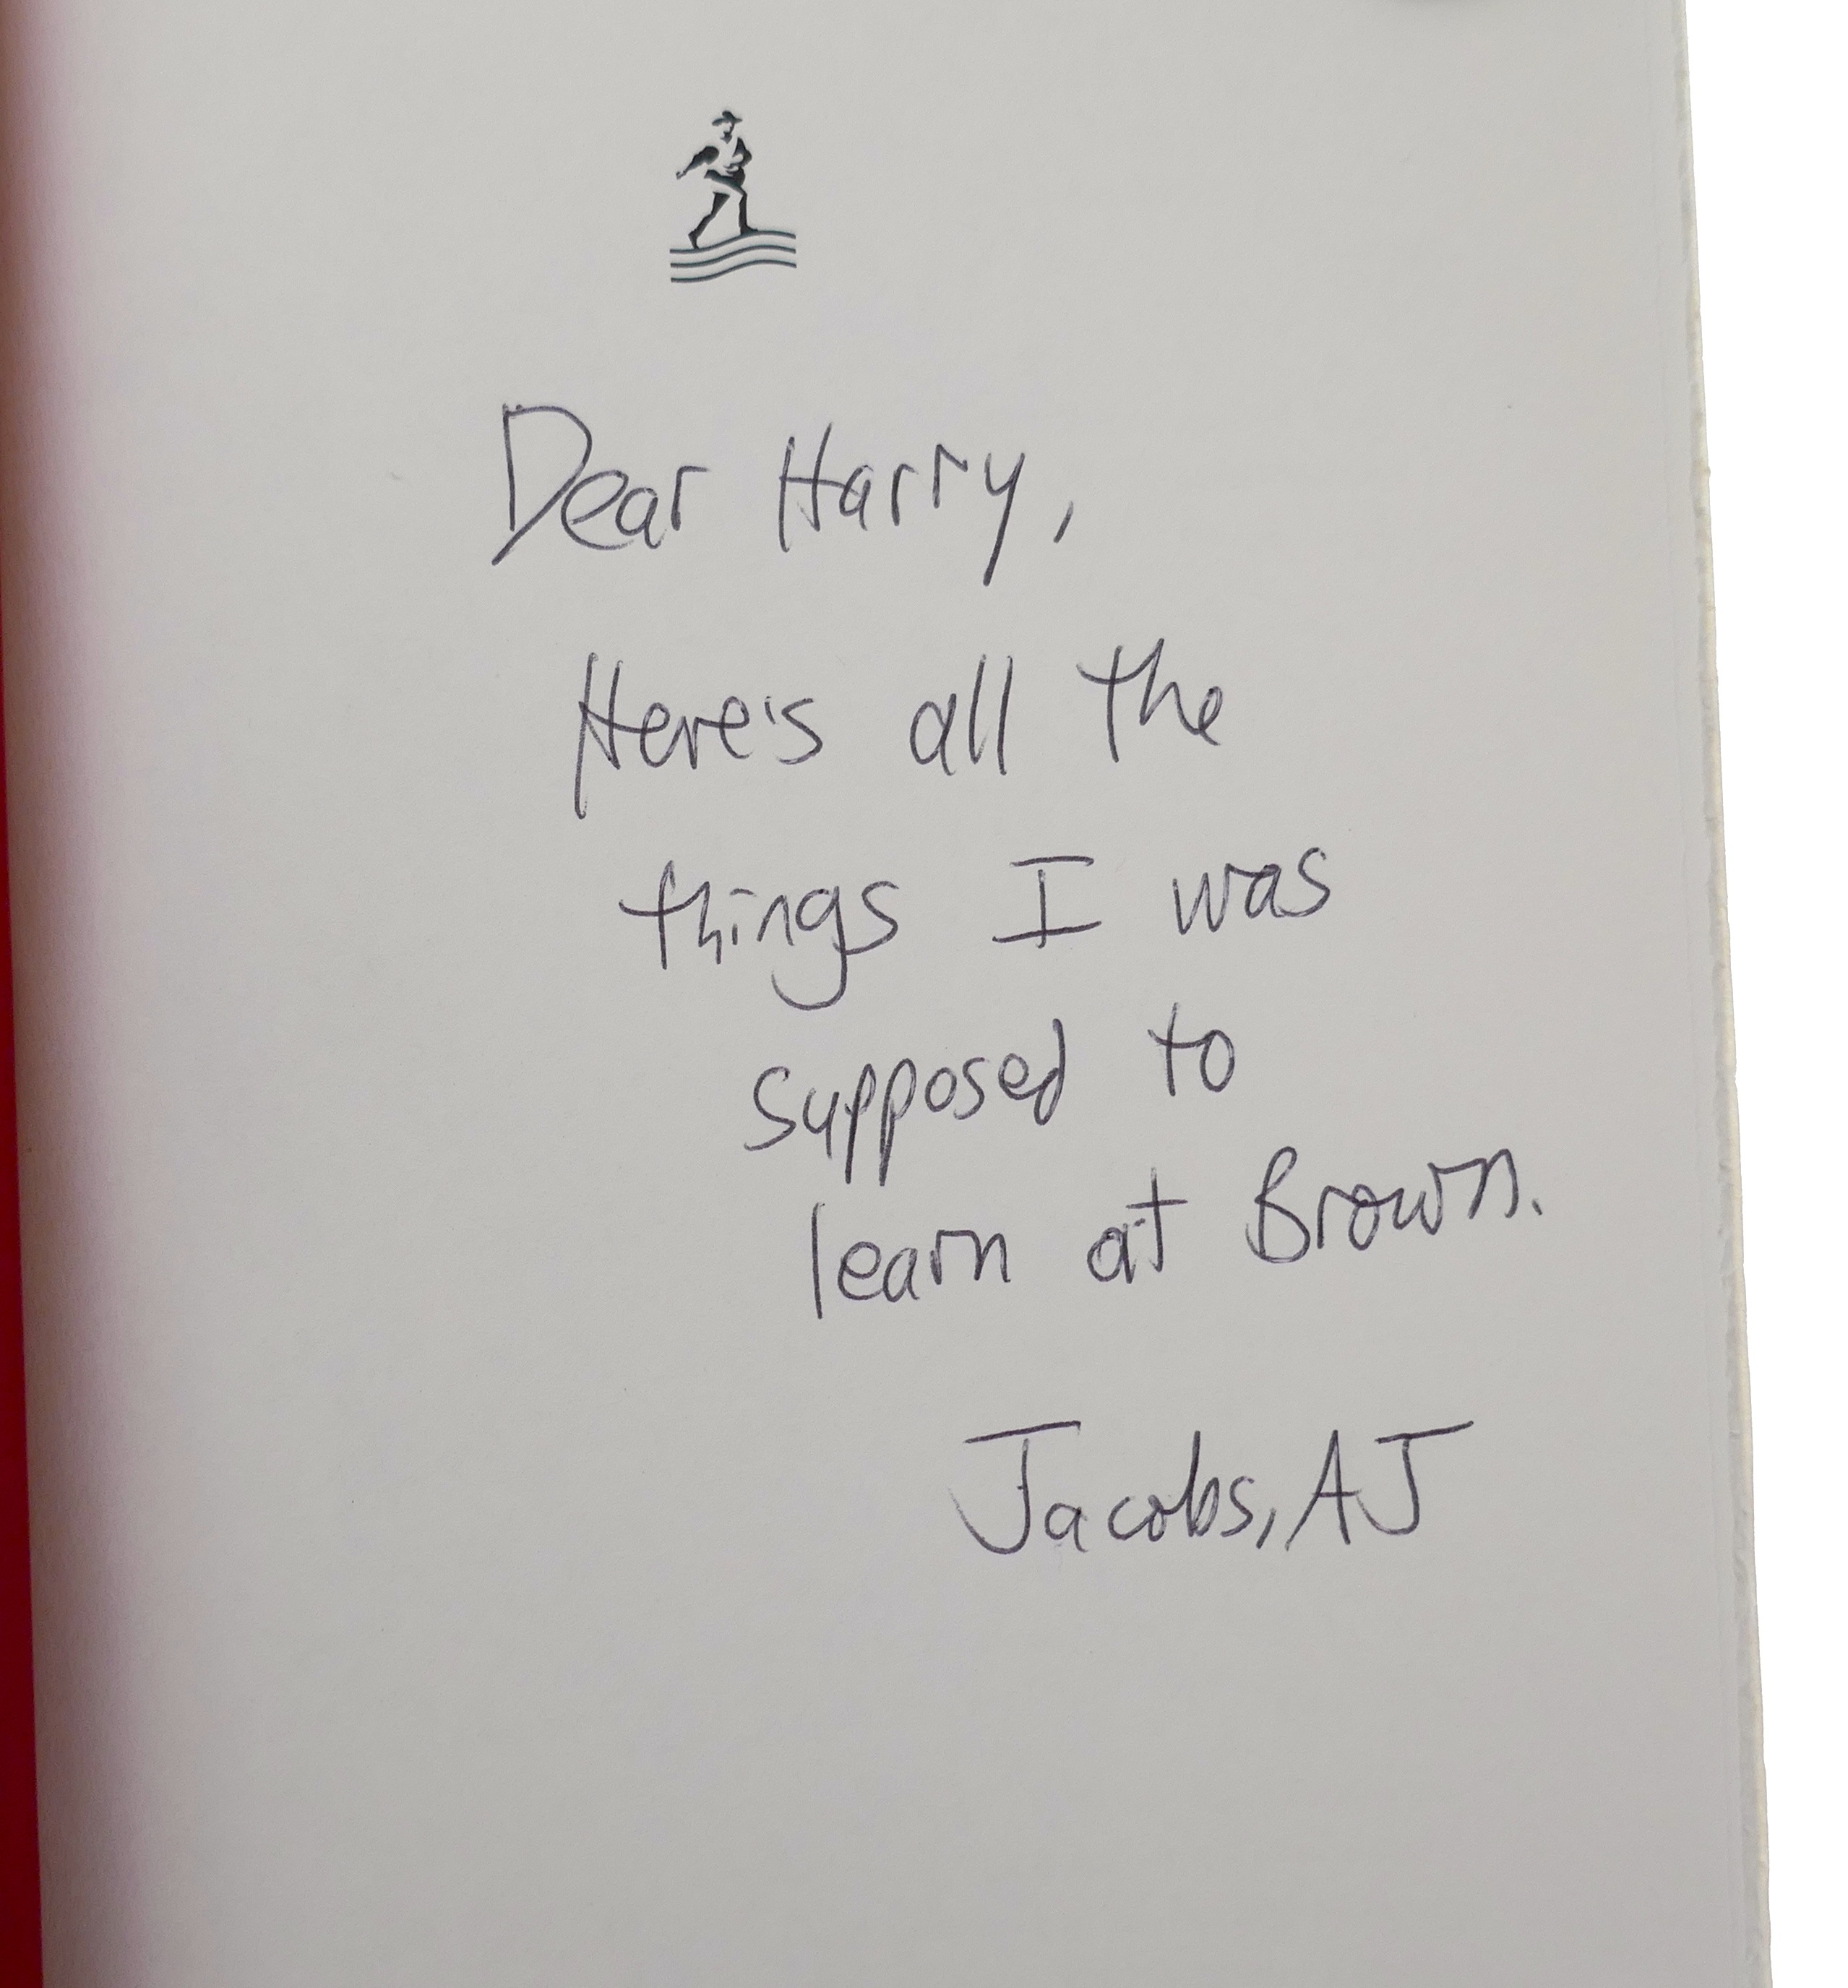 Dear Harry,
Here's all the
things I was
supposed to
learn at Brown.
Jacobs, AJ